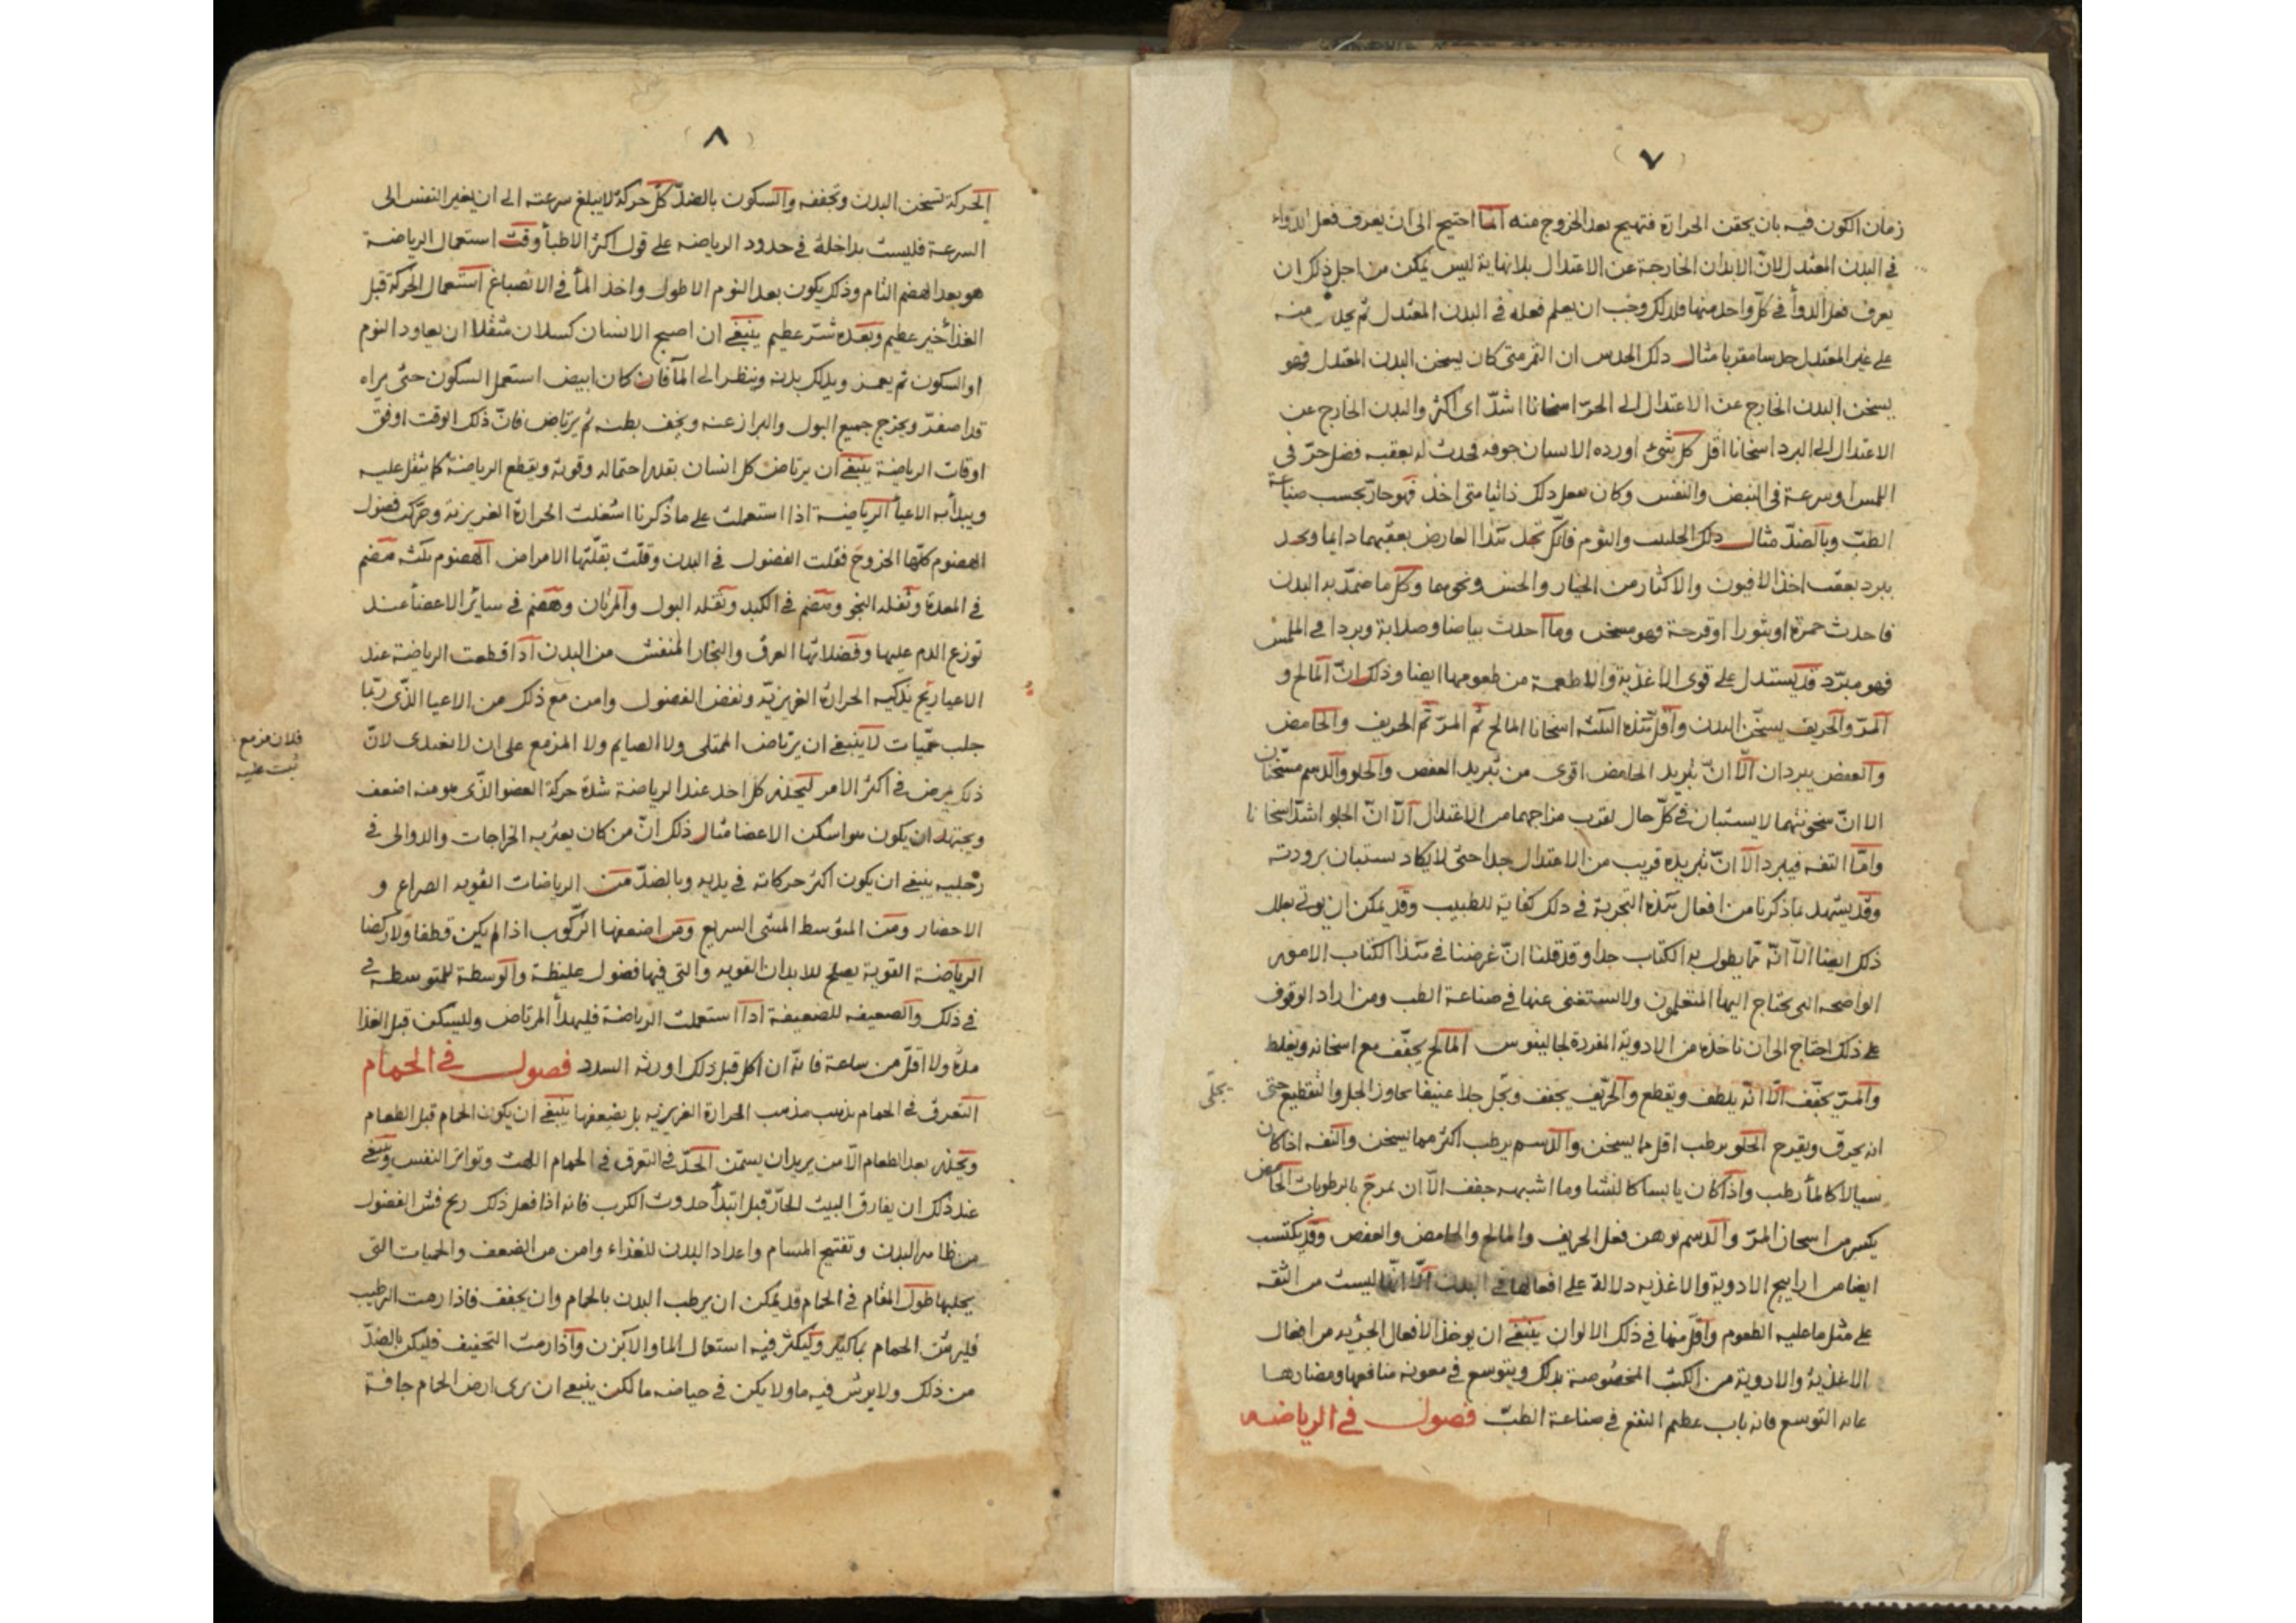 (٧)
زمان الكون فيه بان يحقن الحرارة فتهيج بعد الخروج منه انما احتيج الى ان يعرف فعل الدواء
في البدن المعتدل لانّ الابدان الخارجة عن الاعتدال بلا نهاية ليس يمكن من اجل ذلك ان
يعرف فعل الدوأ في كلّ واحد منها فلذلك وجب ان يعلم فعله في البدن المعتدل ثم يحدس منه
على غير المعتدل حدسا مقربا مثال ذلك الحدس ان الثمر متى كان يسخن البدن المعتدل فهو
يسخن البدن الخارج عن الاعتدال الى الحرّ اسخانا اشدّ اى اكثر والبدن الخارج عن
الاعتدال الى البرد اسخانا اقل كل شئ اورده الانسان جوفه فحدث له بعقبه فضل حرّ فى
اللمس او سرعة فى النبض والنفس وكان يفعل ذلك دائما متى اخذ فهو حارّ بحسب صناعة
الطبّ وبالضدّ مثال ذلك الحلتيت والثوم فانّك تجد هذا العارض بعقبهما دايما وتجد
ببرد بعقب اخذ الافيون والاكثار من الخيار والخس ونحوهما وكل ما ضمّد به البدن
فاحدث حمرة او بثورا او قرحة فهو مسخن وما احدث بياضا وصلابة وبردا في الملمس
فهو مبرّد قد يستدل على قوى الاغذية والاطعمة من طعومها ايضا وذلك انّ المالح و
المرّ والحريف يسخّن البدن واقل هذه الثلثه اسخانا المالح ثم المرّ ثم الحريف والحامض
والعفص يبردان الّا انّ تبريد الحامض اقوى من تبريد العفص والحلو والدسم مسخّنان
الا انّ سخونتهما لا يستبان في كلّ حال لقرب مزاجهما من الاعتدال الّا انّ الحلو اشدّ اسخانا
وامّا التفه فيبرد الّا انّ تبريده قريب من الاعتدال جدا حتى لا يكاد يستبان برودته
وقد يشهد بما ذكرنا من افعال هذه التجربة في ذلك كفاية للطبيب وقد يمكن ان يوتى بعلل
ذلك ايضا الّا انّه مما يطول به الكتاب جدا وقد قلنا انّ غرضنا في هذا الكتاب الامور
الواضحه التي يحتاج اليها المتعلمون ولا يستغنى عنها في صناعة الطب ومن اراد الوقوف
على ذلك احتاج الى ان ناخذه من الادوية المفردة لجالينوس المالح يجفّف مع اسخانه ويغلظ
والمرّ يجفّف الّا انّه يلطف ويقطع والحرّيف يجفف ويجل جلا عنيفا يجاوز الجل والتقطيع حتى
يجلّى
انه يحرق ويقرح الحلو يرطب اقل مما يسخن والدسم يرطب اكثر مما يسخن والتفه اذا كان
سيالا كالمأ رطب واذا كان يابسا كالنشا وما اشبهه جفف الّا ان يمزج بالرطوبات الحامض
يكسر من اسخان المرّ والدسم يوهن فعل الحريف والمالح والحامض والعفص وقد يكتسب
ايضا من اراييح الادوية والاغذيه دلالة على افعالها في البدن الّا انّها ليست من الثقه
على مثل ما عليه الطعوم واقلّ منها في ذلك الالوان ينبغي ان يوخذ الافعال الجزئيه من افعال
الاغذية والادوية من الكتب المخصوصة بذلك ويتوسع في معونه منافعها ومضارها
غاية التوسع فانه باب عظيم النفع في صناعة الطبّ فصول في الرياضه
(٨)
الحركة تسخن البدن وتجففه والسكون بالضدّ كلّ حركة لا يبلغ سرعته الى ان يغير النفس الى
السرعة فليست بداخلة في حدود الرياضه على قول اكثر الاطبأ وقت استعمال الرياضة
هو بعد الهضم التام وذلك يكون بعد النوم الاطول واخذ المأ في الانصباغ استعمال الحركة قبل
الغذأ خير عظيم وبعده شرّ عظيم ينبغي ان اصبح الانسان كسلان مثقلا ان يعاود النوم
او السكون ثم يغمز ويدلك بدنه وينظر الى المأ فان كان ابيض استعمل السكون حتى يراه
قد اصفرّ ويخرج جميع البول والبراز عنه ويخف بطنه ثم يرتاض فانّ ذلك الوقت اوفق
اوقات الرياضة ينبغي ان يرتاض كل انسان بقدر احتماله وقوته ويقطع الرياضة كما يثقل عليه
ويبدأ به الاعيأ الرياضة اذا استعملت على ما ذكرنا اشعلت الحرارة الغريزية وحرّكت فضول
الهضوم كلّها الخروج فقلت الفضول في البدن وقلّت بقلّتها الامراض الهضوم ثلثه هضم
في المعدة وثفله النجو وهضم في الكبد وثفله البول والمرتان وهضم في سائر الاعضأ عند
توزع الدم عليها وفضلاتها العرق والبخار المنفش من البدن اذا قطعت الرياضة عند
الاعيا ربح تذكيه الحرارة الغريزيّة ونفض الفضول وامن مع ذلك من الاعيا الذّى ربّما
جلب حمّيات لا ينبغي ان يرتاض الممتلى ولا الصايم ولا المزمع على ان لا يغتدى لانّ
فلان مزمع
ثبت عليه
ذلك يمرض في اكثر الامر ليحذر كل احد عند الرياضة شدة حركة العضو الذّى هو منه اضعف
ويجتهد ان يكون هو اسكن الاعضا مثال ذلك انّ من كان يعتريه الخراجات والدوالى فى
رجليه ينبغي ان يكون اكثر حركاته في يديه وبالضدّ من الرياضات القويه الصراع و
الاحضار ومن المتوسط المشى السريع ومن اضعفها الركوب اذا لم يكن قطفا ولا ركضا
الرياضة القوية يصلح للابدان القويه والتى فيها فضول غليظة والوسطة للمتوسطه فى
في ذلك والضعيفه للضعيفة اذا استعملت الرياضة فليهدأ المرتاض وليسكن قبل الغذا
مدة ولا اقلّ من ساعة فانّه ان اكل قبل ذلك اورثه السدد فصول في الحمام
التعرق في الحمام يذهب مذهب الحرارة الغريزيه بل يضعفها ينبغي ان يكون الحمام قبل الطعام
ويحذر بعد الطعام الّا من يريد ان يسمّن الحدّ في التعرق في الحمام اللهث وتواتر النفس وينبغي
عند ذلك ان يفارق البيت الحارّ قبل ابتدأ حدوث الكرب فانه اذا فعل ذلك ربح فش الفضول
من ظاهر البدن وتفتيح المسام واعداد البدن للغذاء وامن من الضعف والحميات التى
يجلبها طول المقام في الحمام قد يمكن ان يرطب البدن بالحمام وان يجفف فاذا رمت الرطيب
فليرش الحمام بماء كثير وليكثر فيه استعمال الما والابزن واذا رمت التجفيف فليكن بالضدّ
من ذلك ولا يرش فيه ماء ولا يكن في حياضه ما لكن ينبغي ان يرى ارض الحمام جافة